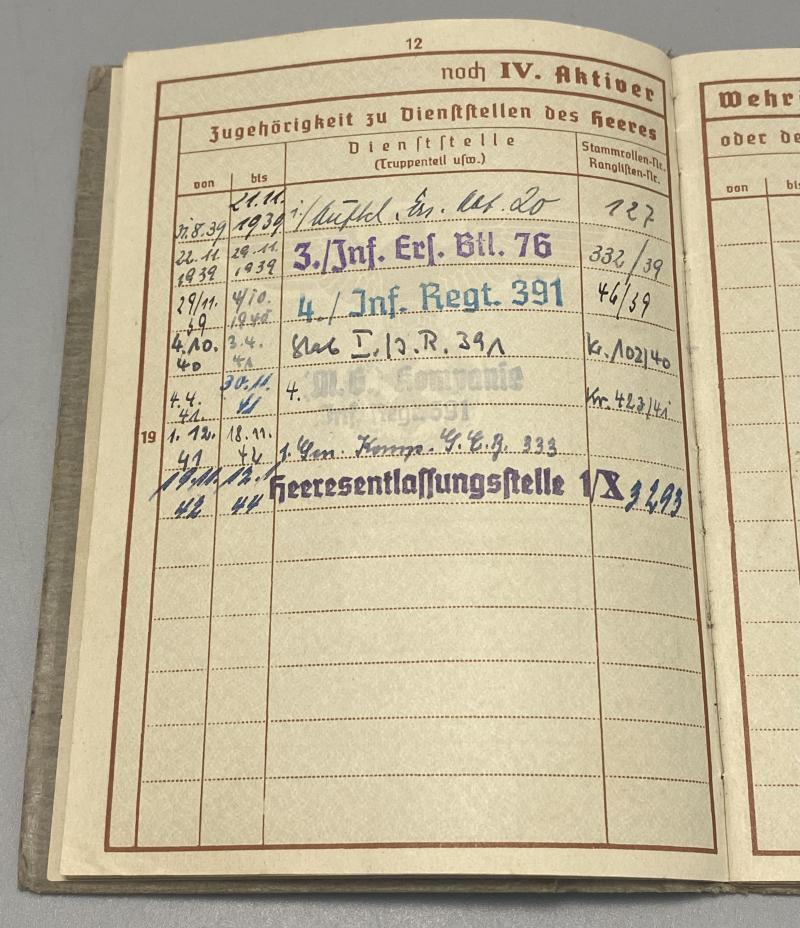 12
noch IV. Aktiver
Zugehörigkeit zu Dienststellen des Heeres
von bis
Dienststelle
(Truppenteil usw.)
Stammrollen-Nr.
Ranglisten-Nr.
31.8.39 21.11. 1939 Ers. 20 127
22.11. 1939 29.11. 1939 3./Inf. Ers. Btl. 76 332/39
29/11. 39 4/10. 1940 4./Inf. Regt. 391 46/39
4.10. 40 3.4. 41 Stab I./J.R. 391 Kr. 102/40
4.4. 41. 30.11. 41 4. M.G. Kompanie Kr. 423/41
19
1.12. 41 18.11. 42 Komp. 333
19.11. 42 12.1. 44 Heeresentlassungsstelle 1/X 3293
Wehr
oder de
von